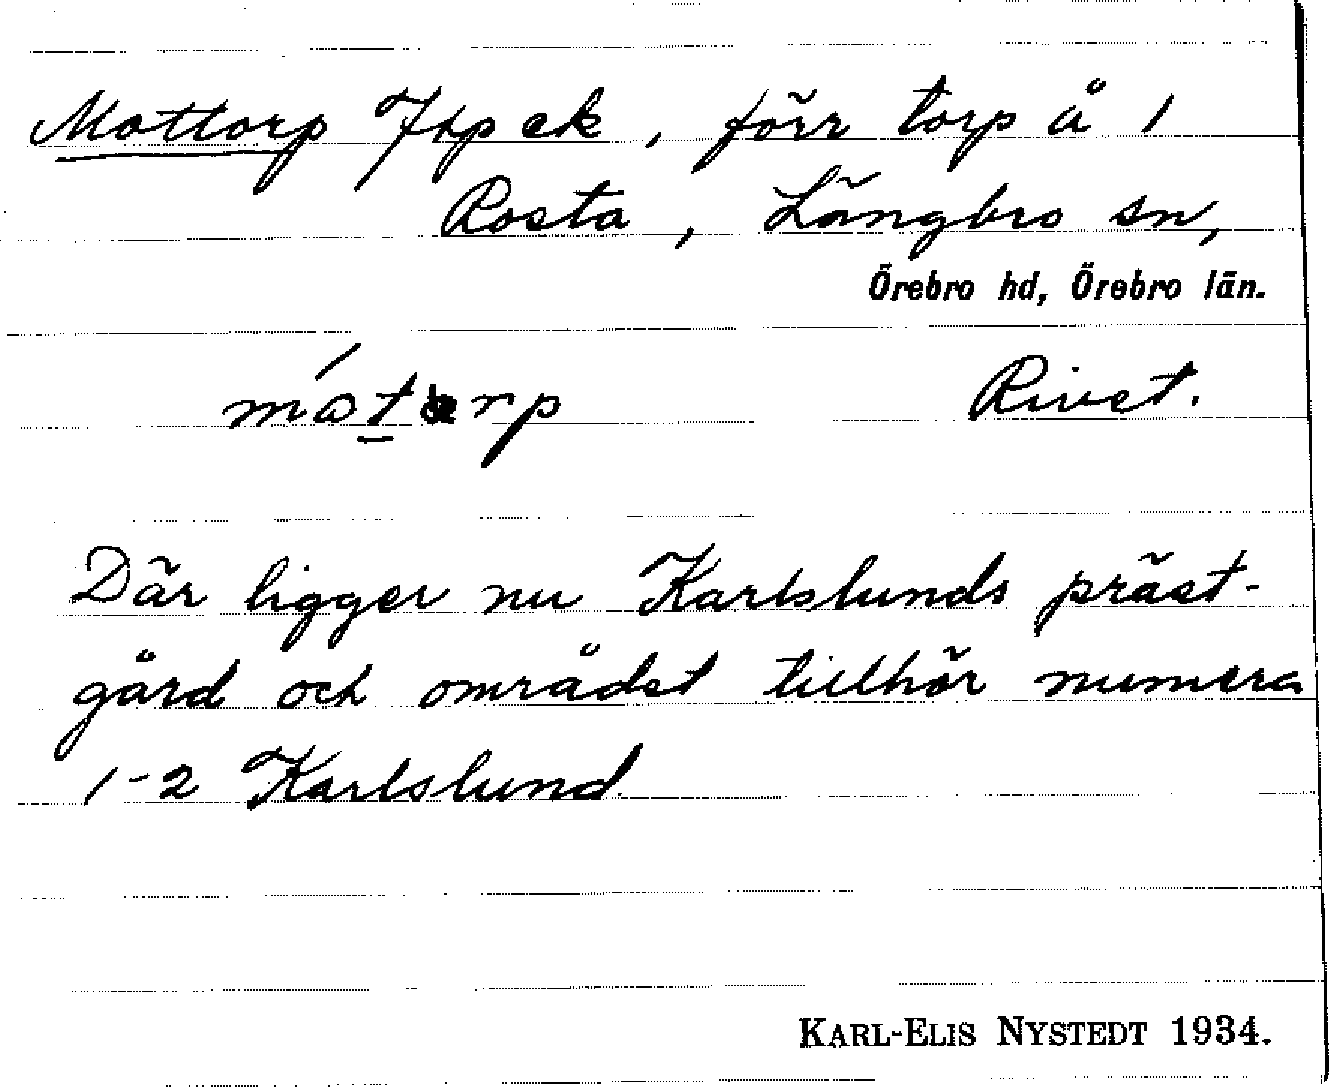 Mottorp Jtp ek, förr torp å 1
Rosta, Längbro sn,
Örebro hd, Örebro län.
mótårp Rivet.
Där ligger nu Karlslunds präst-
gård och området tillhör numera
1-2 Karlslund
KARL-ELIS NYSTEDT 1934.